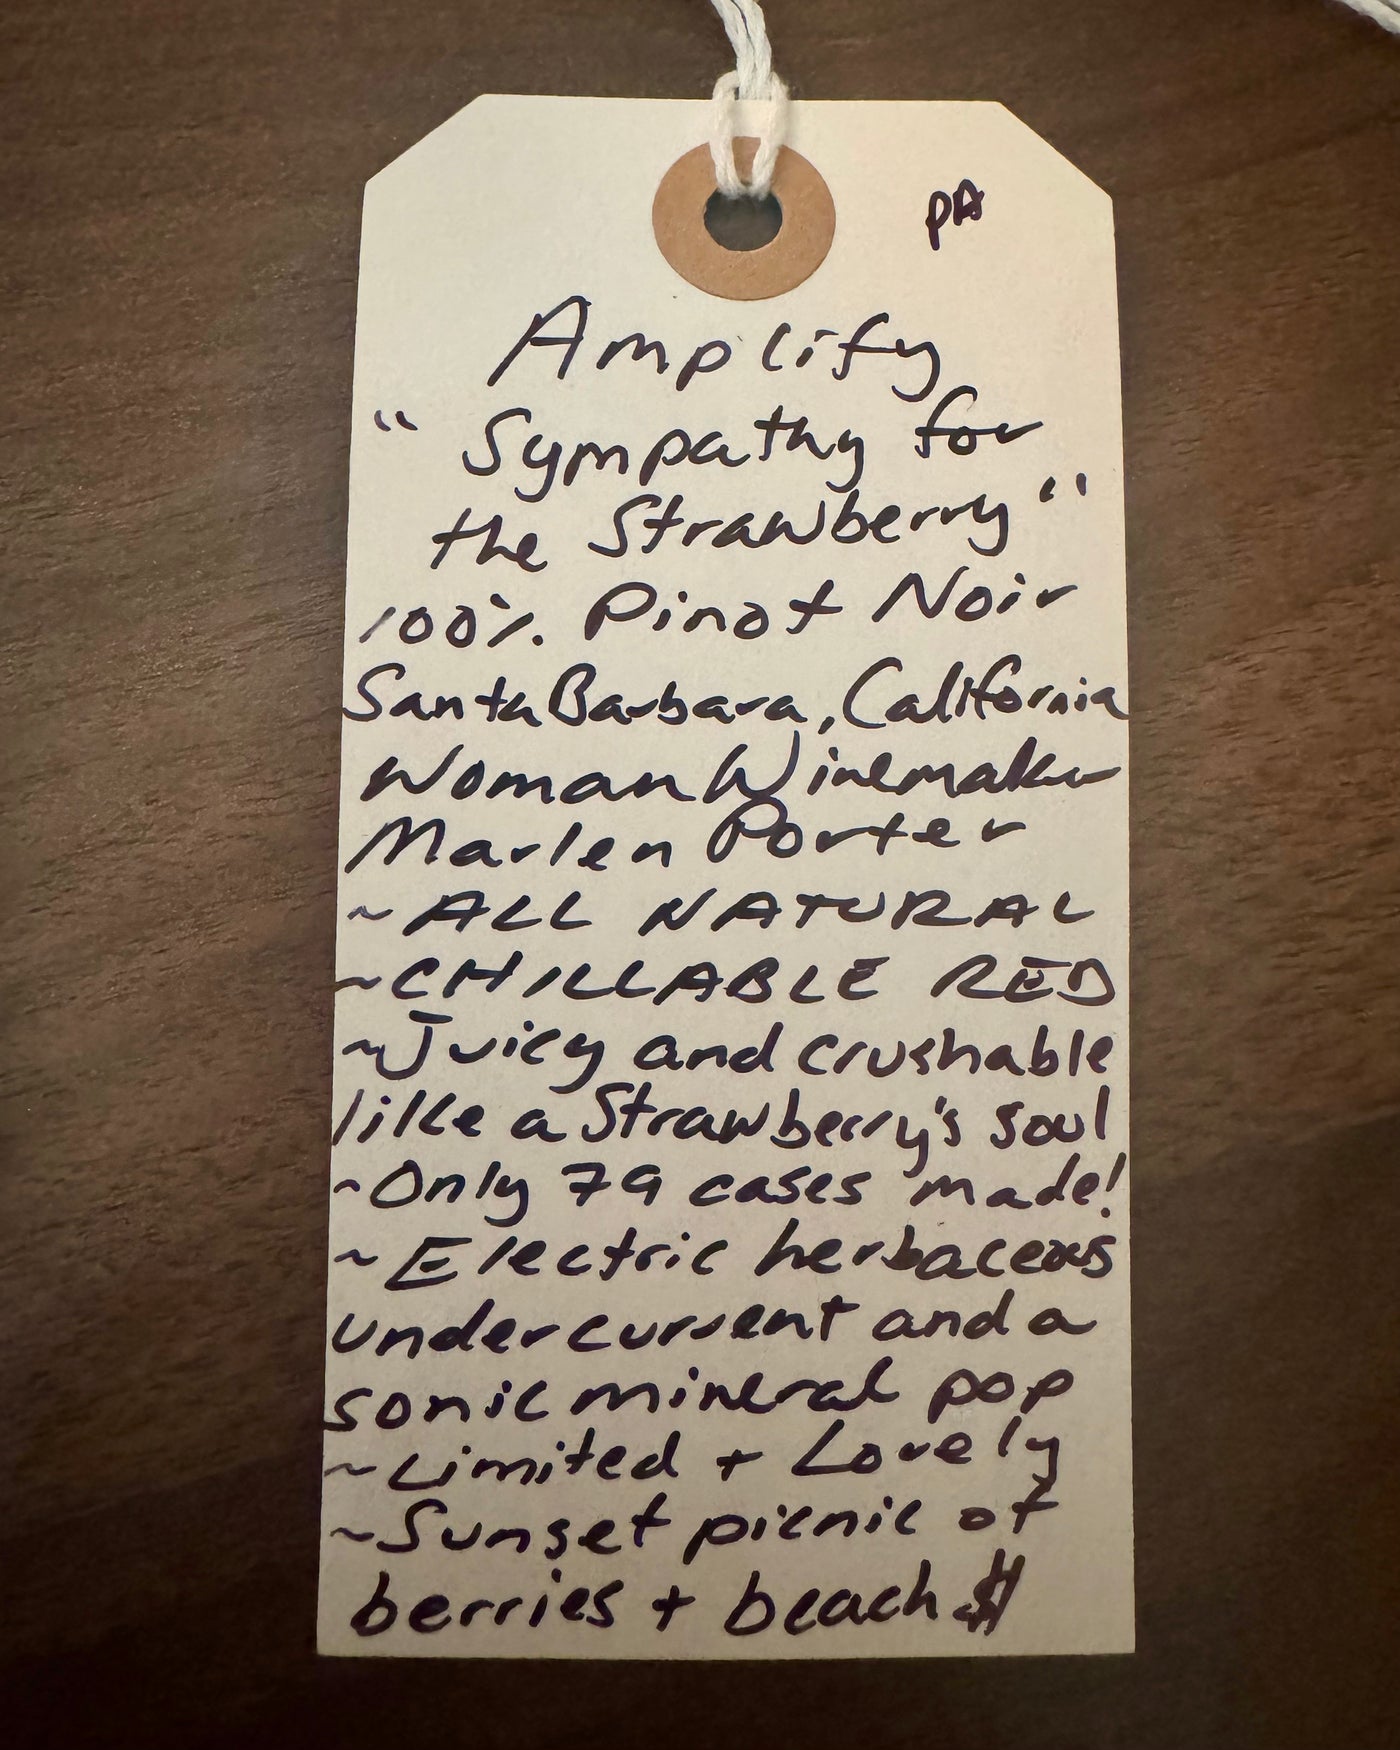 pA
Amplify
"Sympathy for
the Strawberry"
100% Pinot Noir
Santa Barbara, California
Woman Winemaker
Marlen Porter
~ALL NATURAL
~CHILLABLE RED
~Juicy and crushable
like a Strawberry's soul
~Only 79 cases made!
~Electric herbaceous
undercurrent and a
sonic mineral pop
~Limited + Lovely
~Sunset picnic of
berries + beach